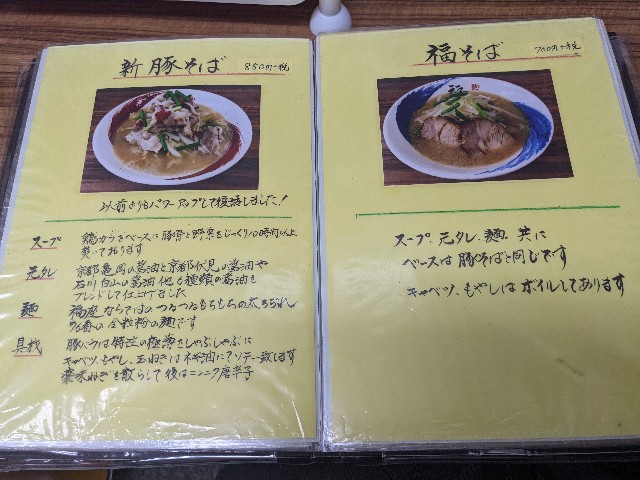 新豚そば 850円+税
以前よりもパワーアップして復活しました!
スープ 鶏ガラをベースに豚骨と野菜をじっくり10時間以上
炊いております
元タレ 京都亀岡の醤油と京都伏見の醤油や
石川白山の醤油他6種類の醤油を
ブレンドして仕上げました
麺 福座ならではのつるつるもちもちの太ちぢれ
の全粒粉の麺です
具材 豚バラは特注の極薄をしゃぶしゃぶに
キャベツ、もやし、玉ねぎはネギ油にてソテー致します
薬味ねぎを散らして後はニンニク唐辛子
福そば 700円+税
福
スープ、元タレ、麺、共に
ベースは豚そばと同じです
キャベツ、もやしはボイルしてあります